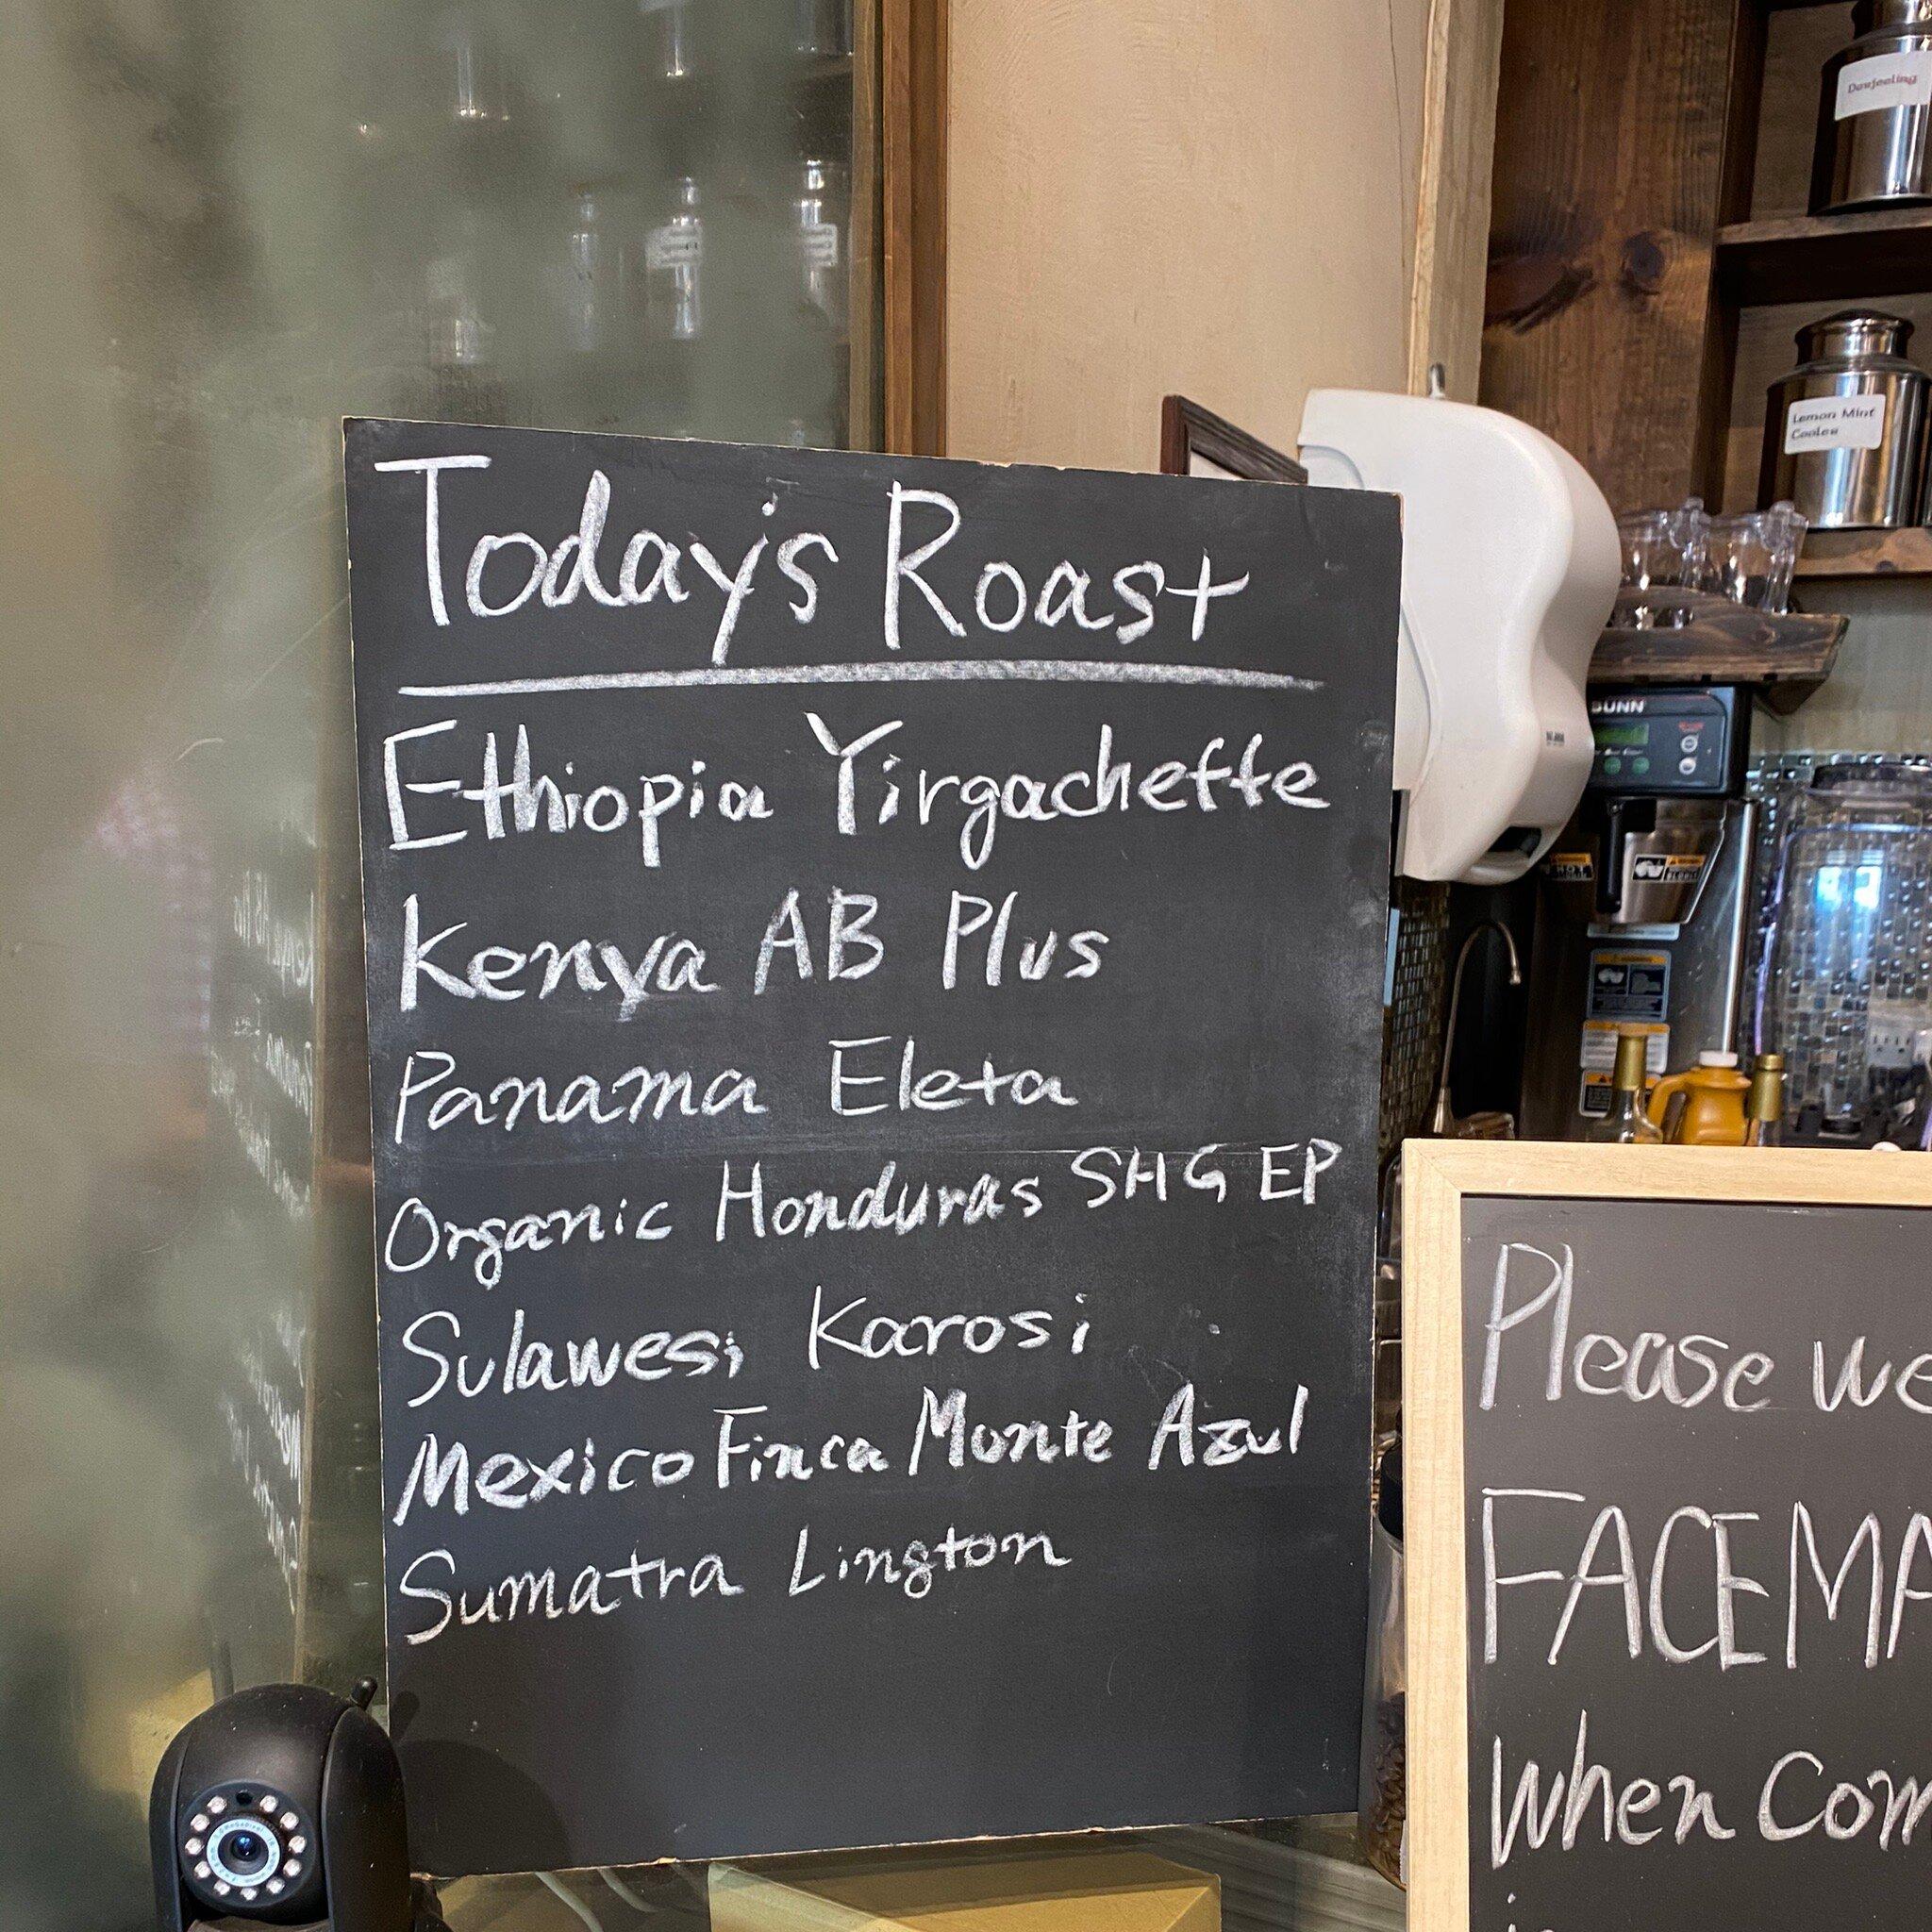 Today's Roast
Ethiopia Yirgacheffe
Kenya AB Plus
Panama Eleta
Organic Honduras SHG EP
Sulawesi Karosi
Mexico Finca Monte Azul
Sumatra Lington
Please we
FACEMA
when com
Lemon Mint
Cooler
BUNN